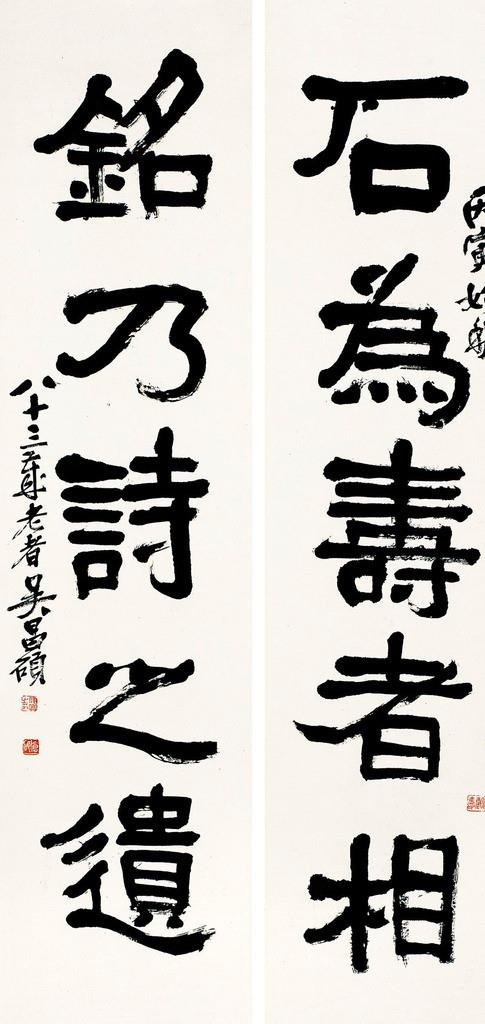 石為壽者相
丙寅
銘乃詩之遺
八十三歲老者吳昌碩